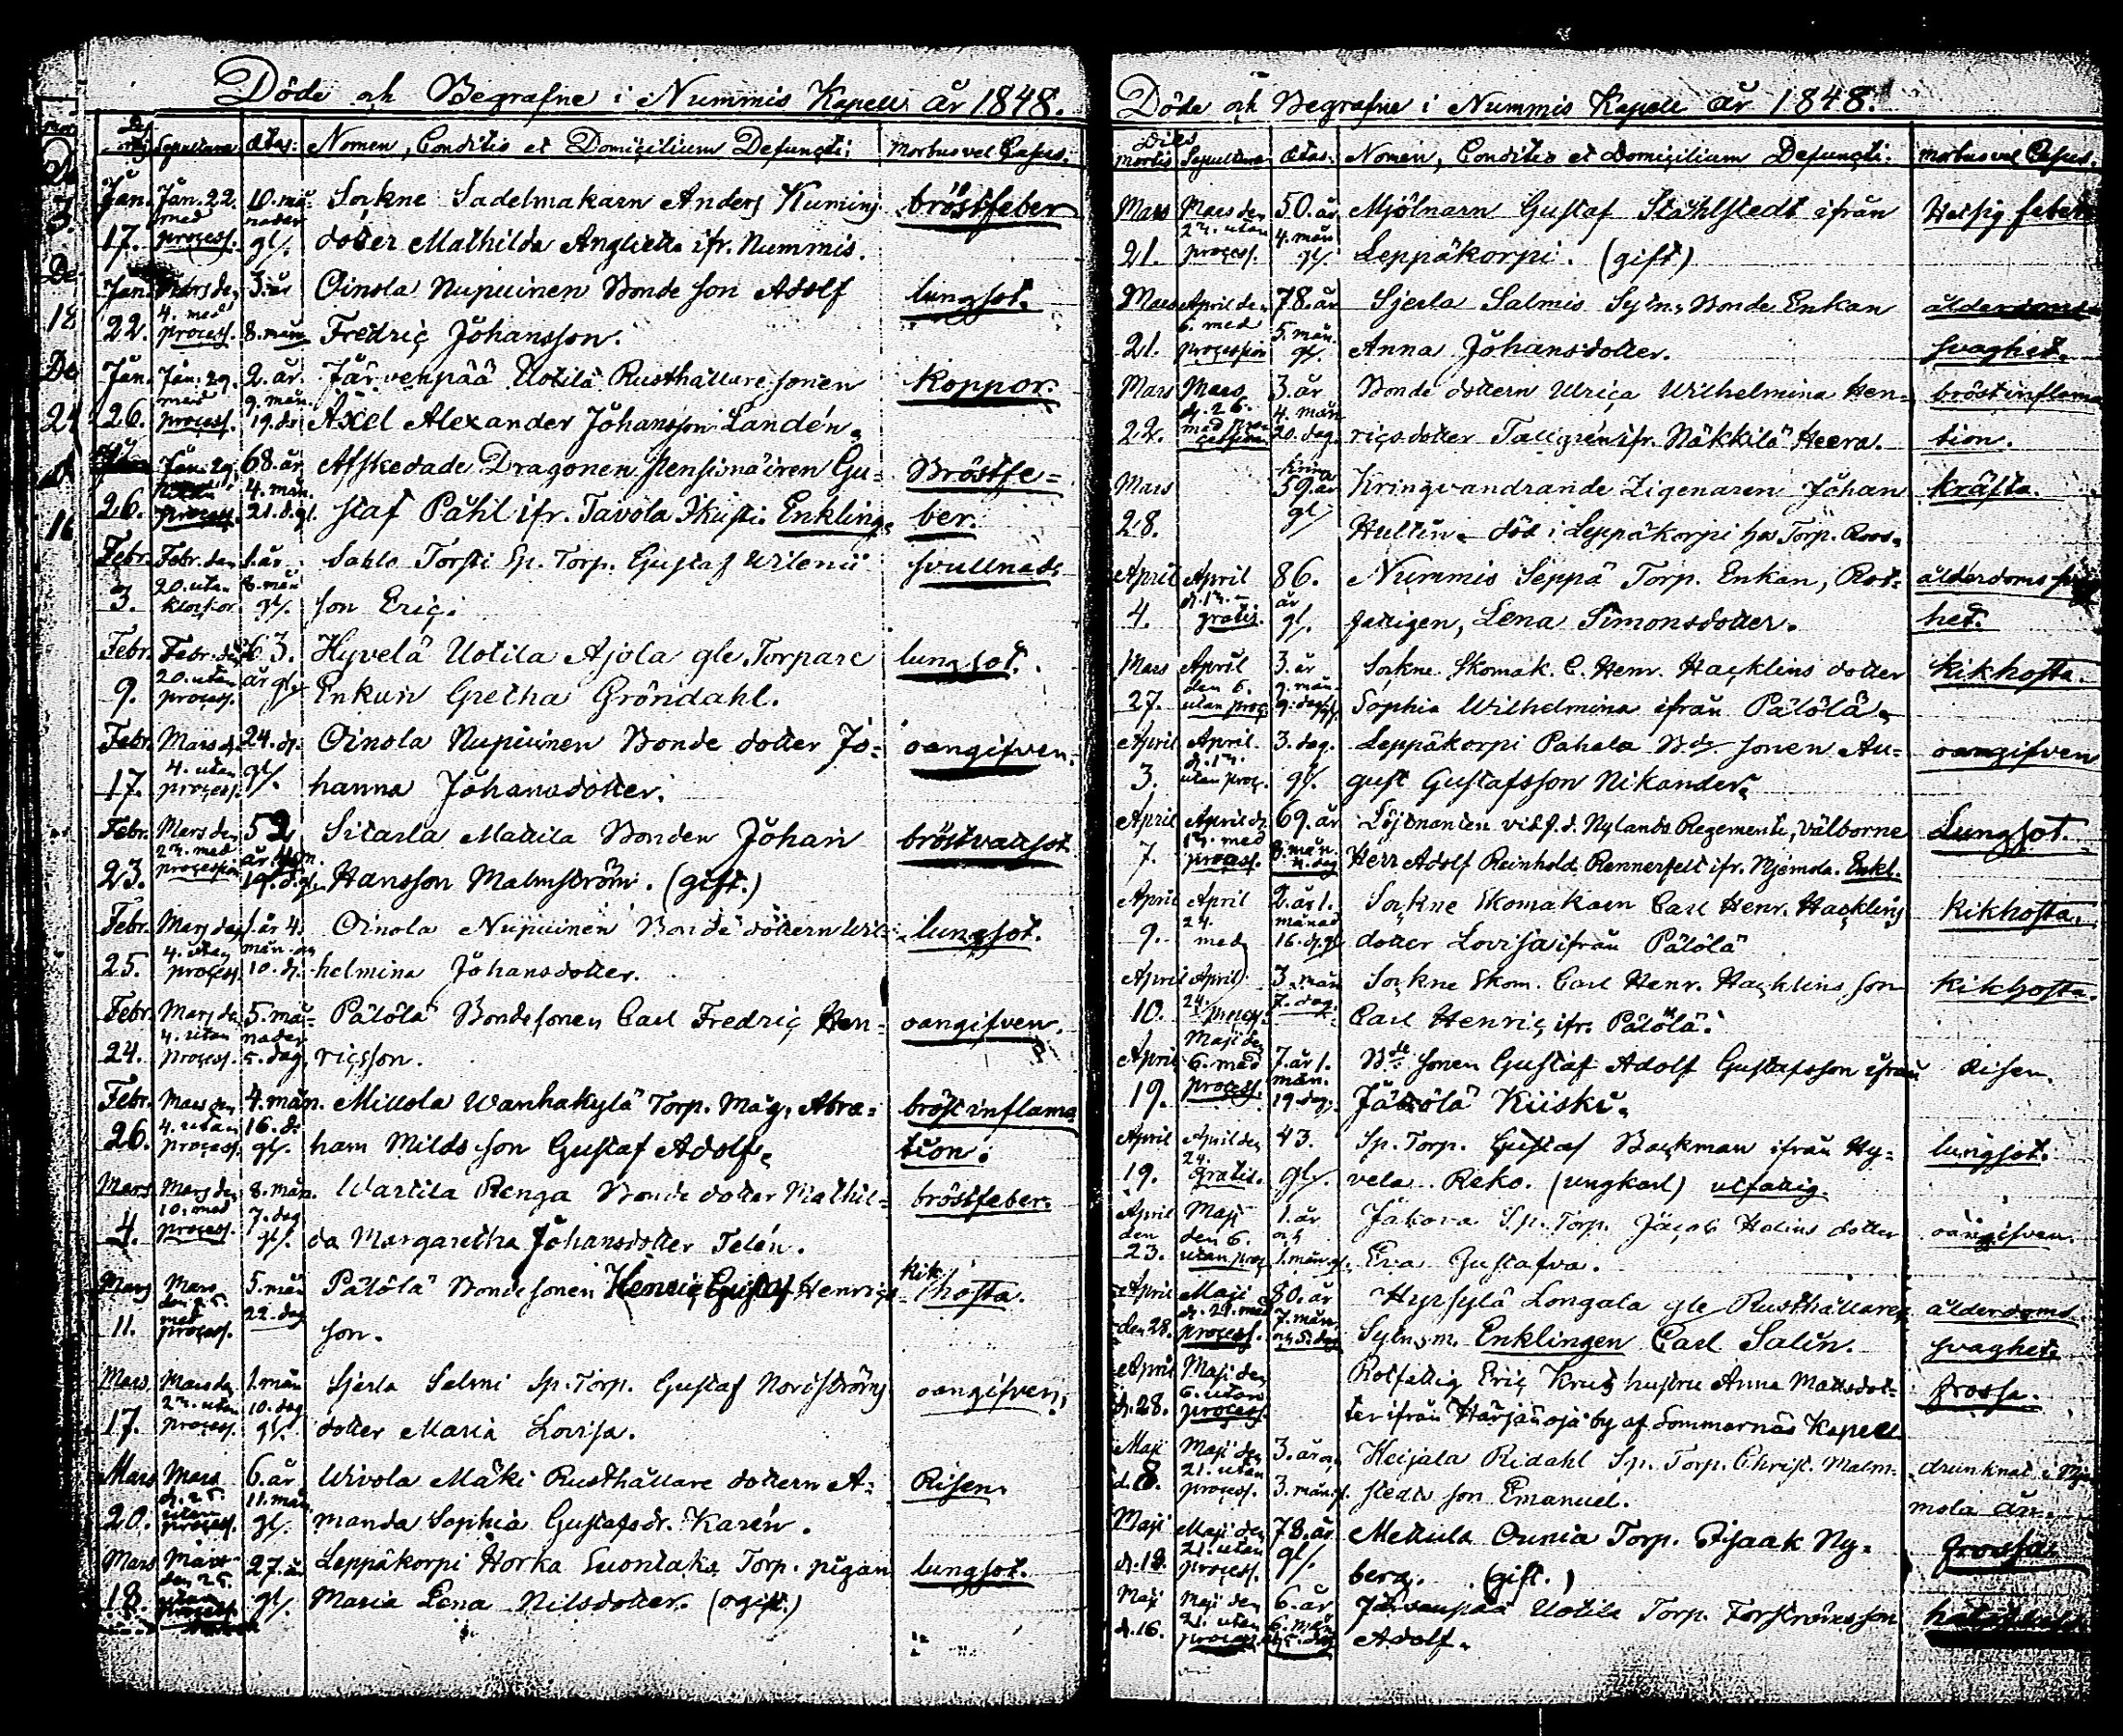 Döde och Begrafne i Nummis Kapell år 1848.
Sepultura Ætas. Nomen, Conditio et Domicilium Defuncti. Morbus vel Casus.
Jan. Jan. 22. 10. må- Sockne Sadelmakarn Anders Kumins bröstfeber
17. med process. nader gl. dotter Mathilda ifr. Nummis.
Jan. Mars den 3. år Oinola Nupuinen Bonde son Adolf lungsot.
22. 4. med process. 8. mån. Fredric Johansson.
Jan. Jan. 29. 2. år. Järvenpää Uotila Rusthållare sonen Koppor.
26. med process. 9. mån. 19. d. Axel Alexander Johansson Landén.
Jan. 29. 68. år Afskedade Dragonen Pensionairen Gu- Bröstfe-
26. process. 4. mån. 21. d. gl. staf Påhl ifr. Tavola Enkling. ber.
Febr. Febr. den 1. år Sablo Torsti Sp. Torp. Gustaf Wilenii svullnad.
3. 20. utan 8. mån gl. son Eric.
Febr. Febr. den 63. Hyvelä Uotila Ajola gle Torpare lungsot.
9. 20. utan process. år gl. Enkan Gretha Gröndahl.
Febr. Mars d. 24. d. Oinola Nupuinen Bonde dotter Jo- oangifven.
17. 4. utan process. gl. hanna Johansdotter.
Febr. Mars den 52 Sitarla Mattila Bonden Johan bröstvattsot
23. med procession år 19. d. gl. Hansson Malmström. (gift.)
Febr. Mars den 1. år 4. Oinola Nupuinen Bonde dottern Wil- lungsot.
25. 4. utan process. mån. och 10. d. helmina Johansdotter.
Febr. Mars den 5. må- Pälölä Bonde sonen Carl Fredric Hen- oangifven.
24. 4. utan process. nader 5. dag. ricsson.
Febr. Mars den 4. mån. Millola Wanhakylä Torp. Måg. Abra- bröst inflama
26. 4. utan process. 16. d. gl. ham Milds son Gustaf Adolf. tion.
Mars Mars den 8. mån. Wartila Renga Bonde dotter Mathil- bröstfeber.
4. 10. med process. 7. dag gl. da Margaretha Johansdotter Telén.
Mars Mars 5. mån Pälölä Bonde sonen Henric Gustaf Henrics- Kik
11. den 25. med process. 22. dag son. hosta.
Mars Mars den 1. mån Sjerla Salmi Sp. Torp. Gustaf Nordströms oangifven.
17. utan process. 10. dag gl. dotter Maria Lovisa.
Mars Mars 6. år Wivola Mäki Rusthållare dottern A- Risen.
20. d. 25. utan process. 11. mån gl. manda Sophia Gustafsdr. Karén.
Mars Mars 27. år Leppäkorpi Horka Torp. pigan lungsot.
18. den 25. gl. Maria Lena Nilsdotter. (ogift.)
Döde och Begrafne i Nummis Kapell år 1848.
Dies
mortis Sepultura Ætas. Nomen, Conditio et Domicilium Defuncti. Morbus vel Casus.
Mars Mars den 50. år Mjölnarn Gustaf Ståhlstedt ifrån Hetsig feber
21. utan process. 4. mån gl. Leppäkorpi. (gift)
Mars April den 78. år Sjerla Salmis Sytn. Bonde Enkan ålderdoms-
21. 6. med procession 5. mån. gl. Anna Johansdotter. svaghet.
Mars Mars 3. år Bonde dottern Ulrica Wilhelmina Hen- bröstinflama
22. d. 26. 4. mån 20. dag. rics dotter Tallgrén ifr. Näkkilä Heera. tion.
Mars kring 59. år Kringvandrande Zigenaren Johan Kräfta.
28. gl. Hultin. död i Leppäkorpi hos Torp. Roos.
April April 86. Nummis Seppä Torp. Enkan, Rot- ålderdoms
4. gratis. år gl. fattigen, Lena Simonsdotter. het.
Mars April 3. år Sockne Skomak. C. Henr. Hacklins dotter Kikhosta.
27. den 6. utan proc. 9. dag. Sophia Wilhelmina ifrån Pälölä.
April April 3. dag. Leppäkorpi Pahala Bde sonen Au- oangifven
3. utan proc. gl. gust Gustafsson Nikander.
April April d. 69. år Löjtnanten vid f. d. Nylands Regemente, Välborne Lungsot.
7. med process. Herr Adolf Reinhold Rennerfelt ifr. Njemola. Enkl.
April April 2. år 1. Sockne Skomakarn Carl Henr. Hacklins Kikhosta.
9. 24. med månad 16. d. gl. dotter Lovisa ifrån Pälölä
April April 3. mån Sockne Skom. Carl Henr. Hacklins son Kikhosta.
10. 24. 7. dag. Carl Henric ifr. Pälölä.
April Maji den 6. med 7. år 1. Bde sonen Gustaf Adolf Gustafsson ifrån Risen.
19. process. mån. 19. dag. Kiiski.
April April den 43. Sp. Torp. Gustaf Backman ifrån Hy- lungsot.
19. 24. gratis. gl. vela Reko. (ungkarl) utfattig.
April Maji 1. år Jakova Sp. Torp. Jacob Helins dotter oangifven.
den 23. den 6. utan proc. och 1. mån gl. Eva Gustafva.
April Maji 80. år Hyrsylä Longala gle Rusthållaren ålderdoms
den 28. d. 21. med process. 7. mån och 5. dag Sytn. m. Enklingen Carl Salin. svaghet.
April Maji den Rotfattig Eric Krutz hustru Anna Mattsdot- frossa.
d. 28. 6. utan process. ter ifrån Härjänoja by af Sommarnäs Kapell
Maji Maji den 3. år och Heijala Ridahl Sp. Torp. Christ. Malm- drunknat i Nje
d. 8. 21. utan process. 3. mån gl. stedts son Emanuel. mola ån.
Maji Maji den 78. år Mettula Ounia Torp. Isaak Ny- frossa.
d. 18. 21. utan process. gl. berg. (gift.)
Maji Maji den 6. år Järvenpää Uotila Torp. Forströms son
d. 16. 21. utan 6. mån Adolf.